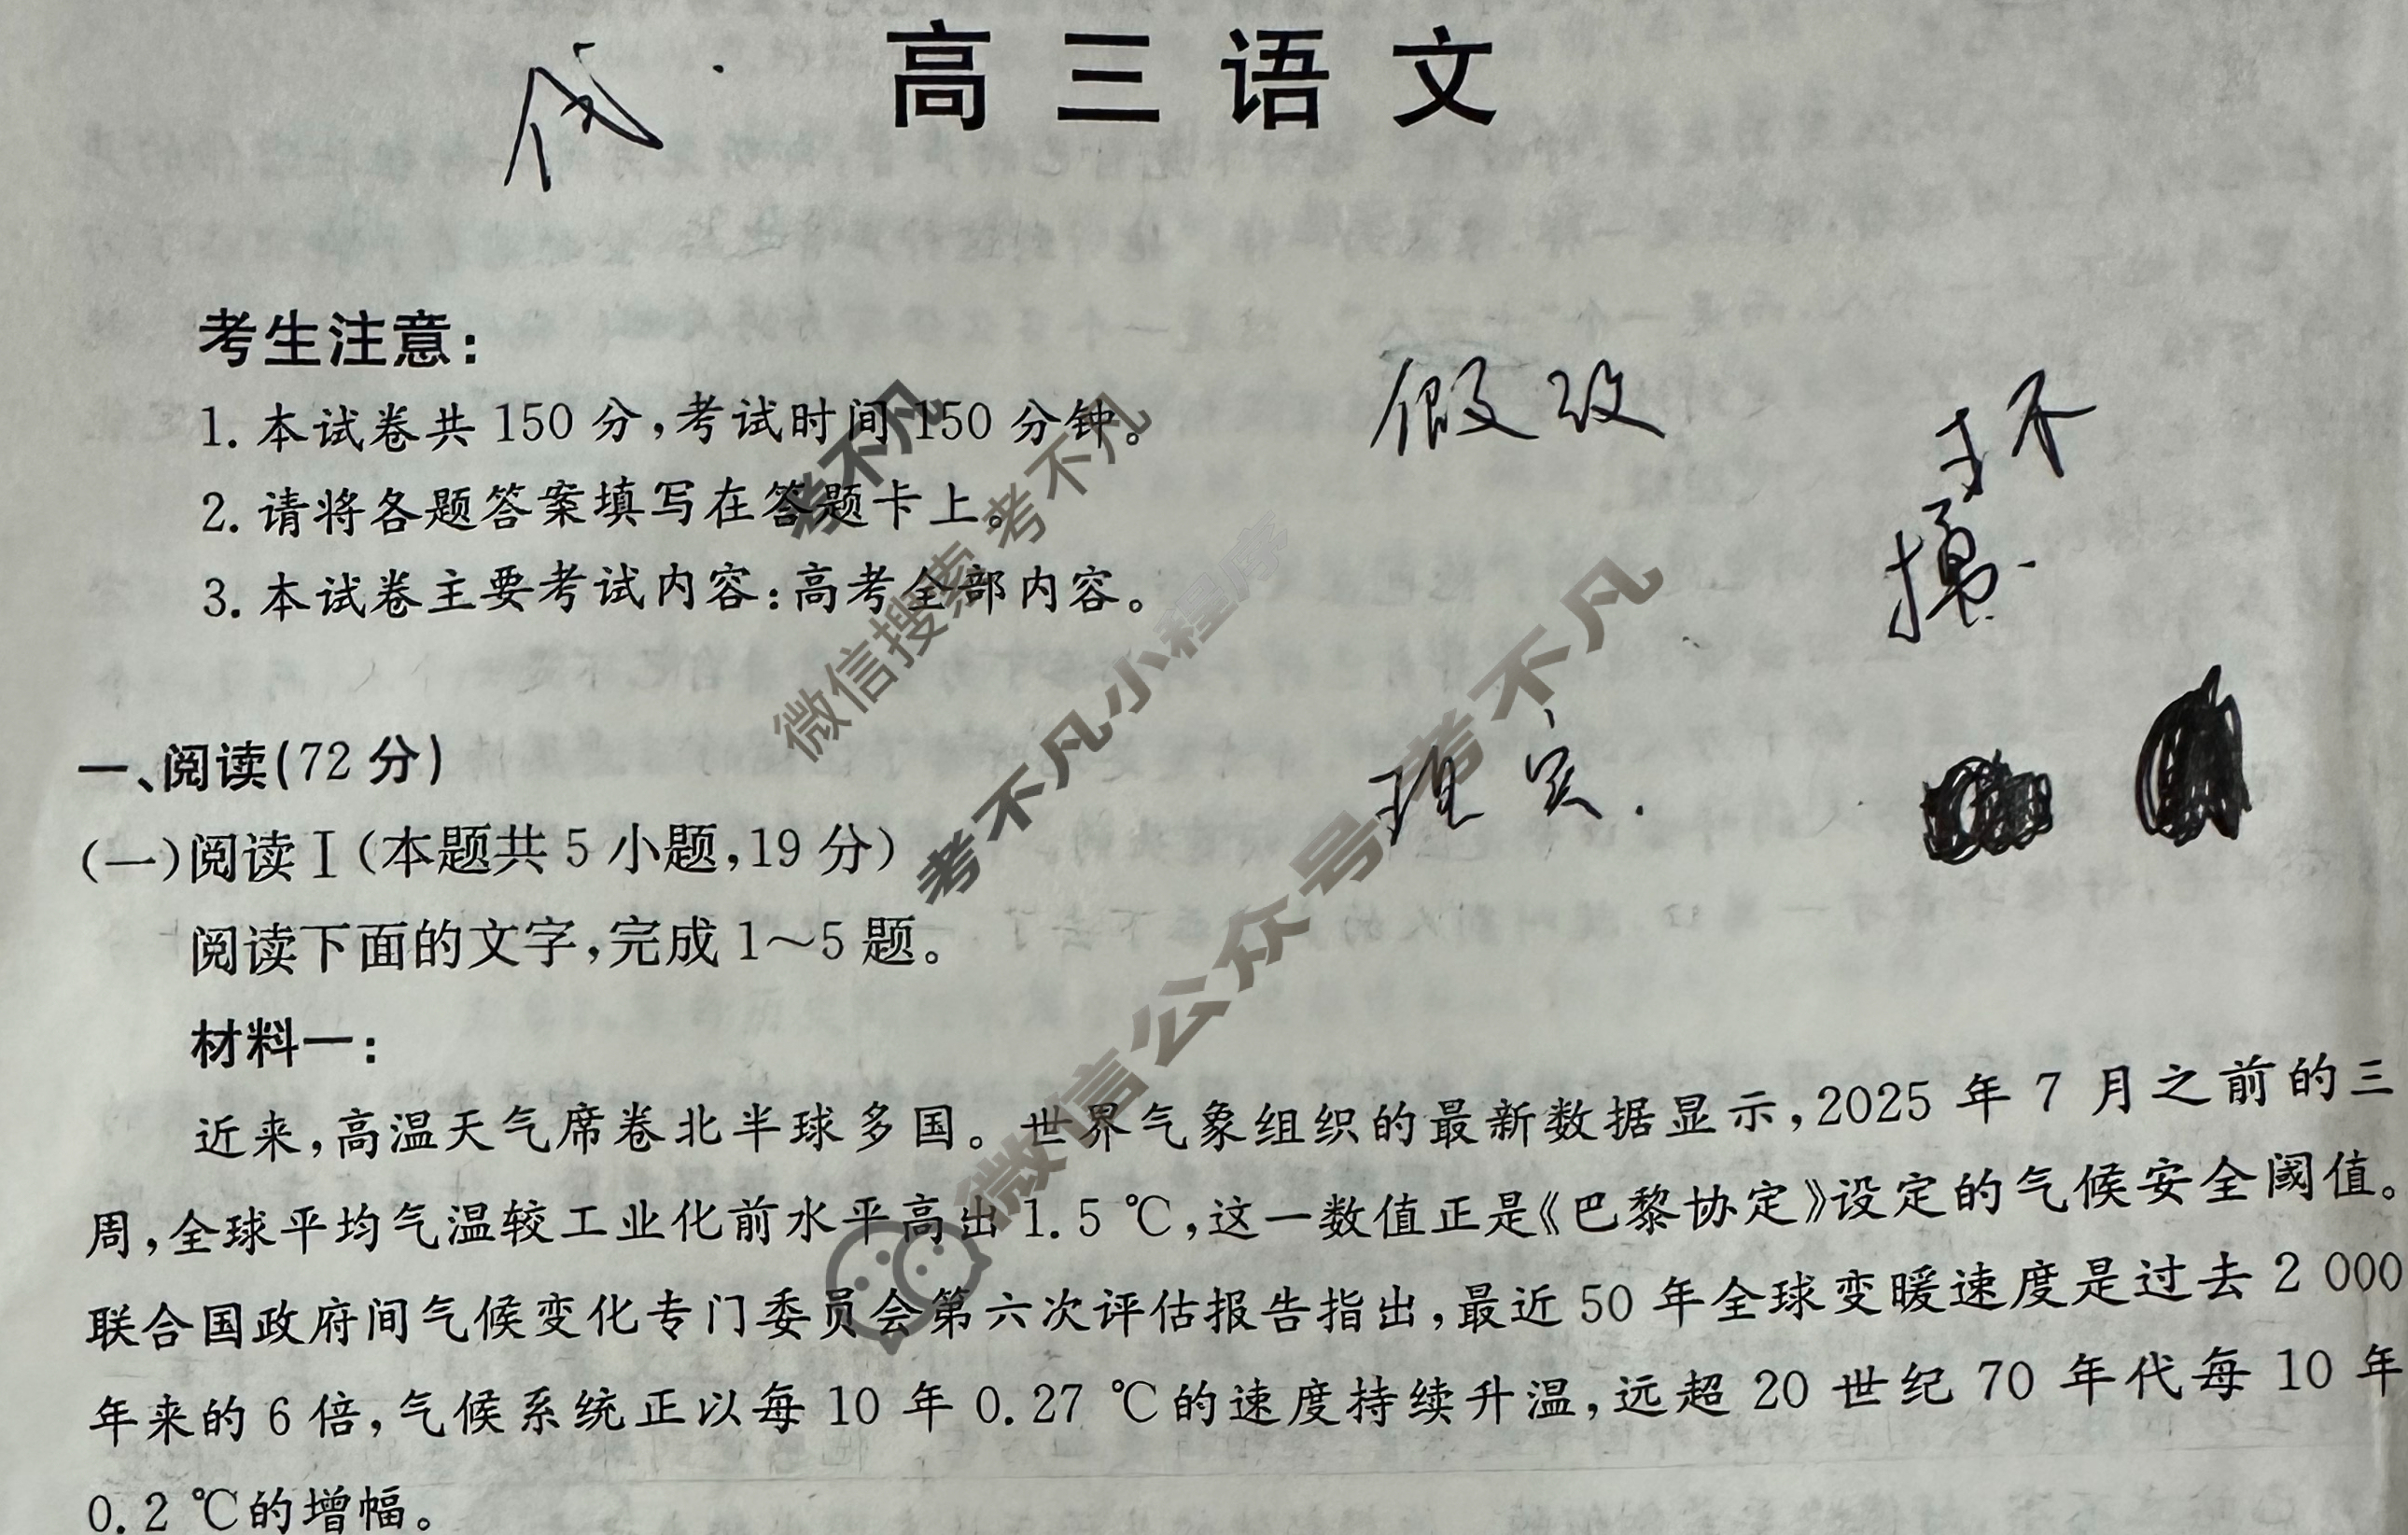 高三语文
考生注意：
1. 本试卷共 150 分，考试时间 150 分钟。
2. 请将各题答案填写在答题卡上。
3. 本试卷主要考试内容：高考全部内容。
假设
环
现实.
一、阅读(72 分)
(一)阅读Ⅰ(本题共 5 小题，19 分)
阅读下面的文字，完成 1～5 题。
材料一：
近来，高温天气席卷北半球多国。世界气象组织的最新数据显示，2025 年 7 月之前的三
周，全球平均气温较工业化前水平高出 1.5 ℃，这一数值正是《巴黎协定》设定的气候安全阈值。
联合国政府间气候变化专门委员会第六次评估报告指出，最近 50 年全球变暖速度是过去 2 000
年来的 6 倍，气候系统正以每 10 年 0.27 ℃的速度持续升温，远超 20 世纪 70 年代每 10 年
0.2 ℃的增幅。
考不凡
微信搜索 考不凡
考不凡小程序
微信公众号 考不凡